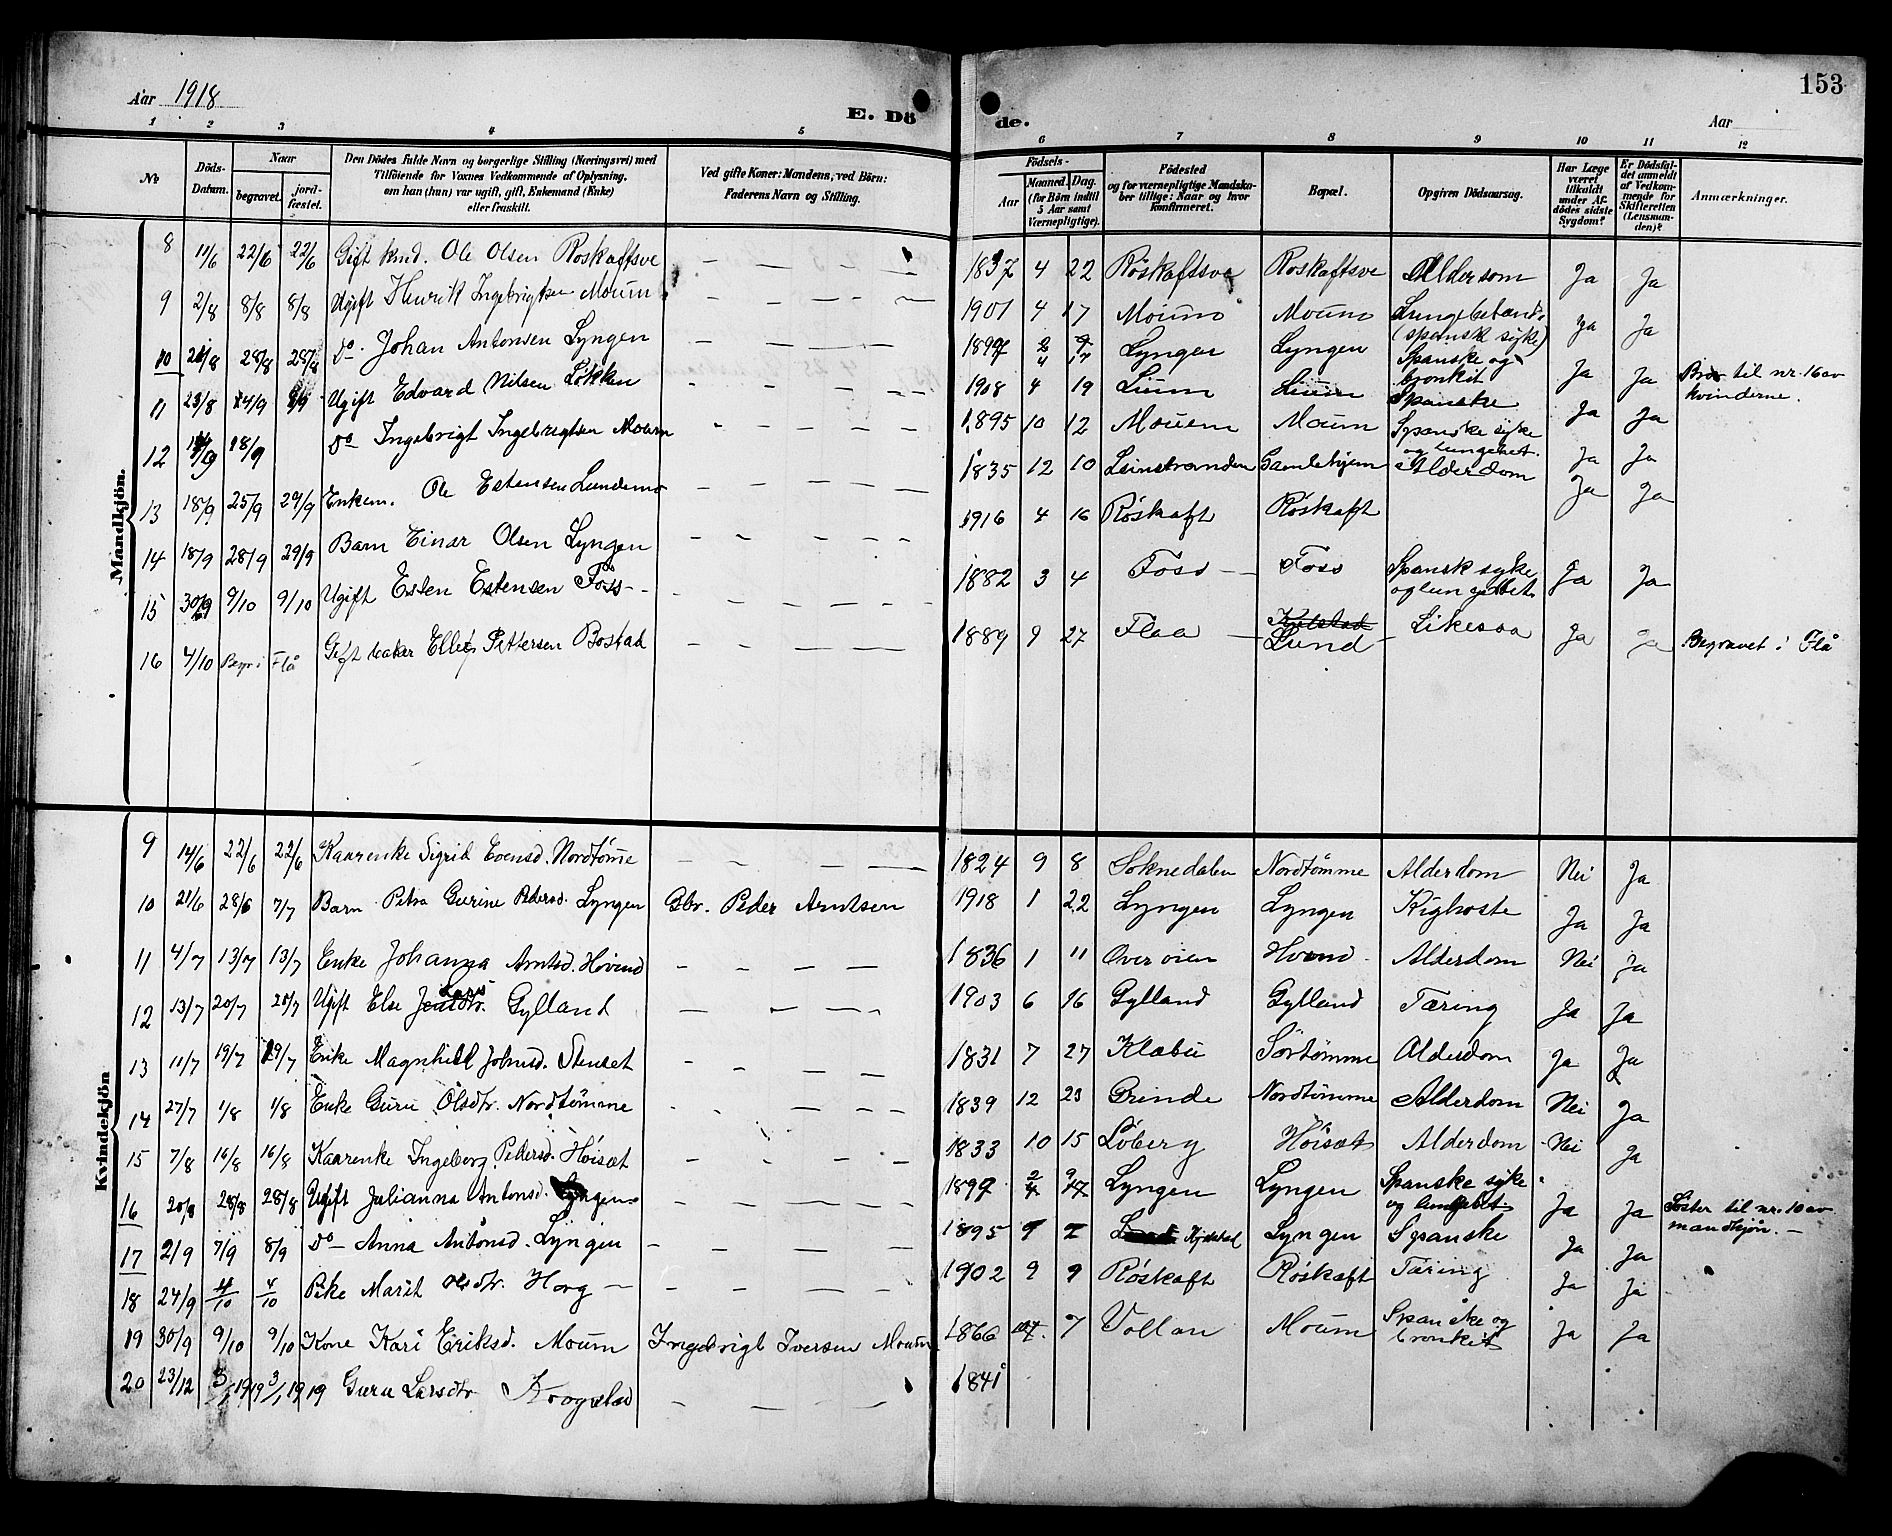 153
Aar 1918
E. Dö
de.
Aar
1 2 3 4 5 6 7 8 9 10 11 12
№
Döds-Datum.
Naar
begravet.
jord-fæstet.
Den Dödes fulde Navn og borgerlige Stilling (Næringsvei) med
Tilföiende for Voxnes Vedkommende af Oplysning,
om han (hun) var ugift, gift, Enkemand (Enke)
eller fraskilt.
Ved gifte Koner: Mandens; ved Börn:
Faderens Navn og Stilling.
Födsels-
Aar
Maaned. Dag.
(for Börn indtil
5 Aar samt
Værnepligtige).
Födested
og for værnepligtige Mandska-
ber tillige: Naar og hvor
konfirmeret.
Bopæl.
Opgiven Dödsaarsag.
Har Læge
været
tilkaldt
under Af-
dödes sidste
Sygdom?
Er Dödsfal-
det anmeldt
af Vedkom-
mende for
Skifteretten
(Lensman-
den)?
Anmærkninger.
Mandkjön.
8 11/6 22/6 22/6 Gift kmd. Ole Olsen Röskaftsve — — — — 1837 4 22 Röskaftsve Röskaftsve Aldersom Ja Ja
9 2/8 8/8 8/8 Ugift Henrik Ingebrigtsen Moum — — — — 1901 4 17 Moum Moum Lungebetænd. (spansk syke) Ja Ja
10 28/8 28/8 Do Johan Antonsen Lyngen — — — — 1897 Lyngen Lyngen Spanske og bronkit Ja Ja Bror til nr. 16 av kvinderne.
11 14/9 Ugift Edvard Nilsen Løkken — — — — 1908 4 19 Lium Lium Spanske Ja Ja
12 18/9 Do Ingebrigt Ingebrigtsen Moum — — — — 1895 10 12 Mouem Moum Spanske syke og lungebet. Ja Ja
13 18/9 25/9 29/9 Enkem. Ole Estensen Lundemo — — — — 1835 12 10 Leinstranden Gamlehjem Alderdom Ja Ja
14 18/9 28/9 29/9 Barn Einar Olsen Lyngen — — — — 1916 4 16 Röskaft Röskaft
15 30/9 9/10 9/10 Ugift Esten Estensen Foss — — — — 1882 3 4 Foss Foss Spansk syke og lungebet. Ja Ja
16 4/10 Begr. i Flå Gift baker Ellef Pettersen Bostad — — — — 1889 9 27 Flaa Lund Likesaa Ja Ja Begravet i Flå
Kvindekjön
9 14/6 22/6 22/6 Kaarenke Sigrid Evensd. Nordtömme — — — — 1824 9 8 Soknedalen Nordtömme Alderdom Nei Ja
10 21/6 28/6 7/7 Barn Petra Gurine Pedersd. Lyngen Gbr. Peder Arntsen 1918 1 22 Lyngen Lyngen Kighoste Ja Ja
11 4/7 13/7 13/7 Enke Johanna Arntsd. Hovind — — — — 1836 1 11 Overøien Alderdom Nei Ja
12 13/7 20/7 20/7 Ugift Else Lars dtr. Gylland — — — — 1903 6 16 Gylland Gylland Tæring Ja Ja
13 11/7 19/7 19/7 Enke Magnhild Johnsd. Stenset — — — — 1831 7 27 Klæbu Sörtömme Alderdom Ja Ja
14 27/7 1/8 1/8 Enke Guru Olsdtr. Nordtömme — — — — 1839 12 23 Grinde Nordtömme Alderdom Nei Ja
15 7/8 16/8 16/8 Kaarenke Ingeborg Pedersd. Höisæt — — — — 1833 10 15 Löberg Höisæt Alderdom Nei Ja
16 20/8 28/8 28/8 Ugift Julianna Antonsd. Lyngen — — — — 1897 Lyngen Lyngen Spanske syke og lungebet. Ja Ja Söster til nr. 10 av mandkjön. —
17 2/9 7/9 8/9 Do — Anna Antonsd. Lyngen — — — — 1895 Lyngen Spanske Ja Ja
18 24/9 4/10 4/10 Pike Marit Olsdtr. Horg — — — — — 1902 9 9 Röskaft Röskaft Tæring Ja Ja
19 30/9 9/10 9/10 Kone Kari Eriksd. Moum Ingebrigt Iversen Moum 1866 7 Vollan Moum Spanske og bronkit Ja Ja
20 23/12 3/1 1919 3/1 1919 Guru Larsdtr. Krogstad — — — — 1841